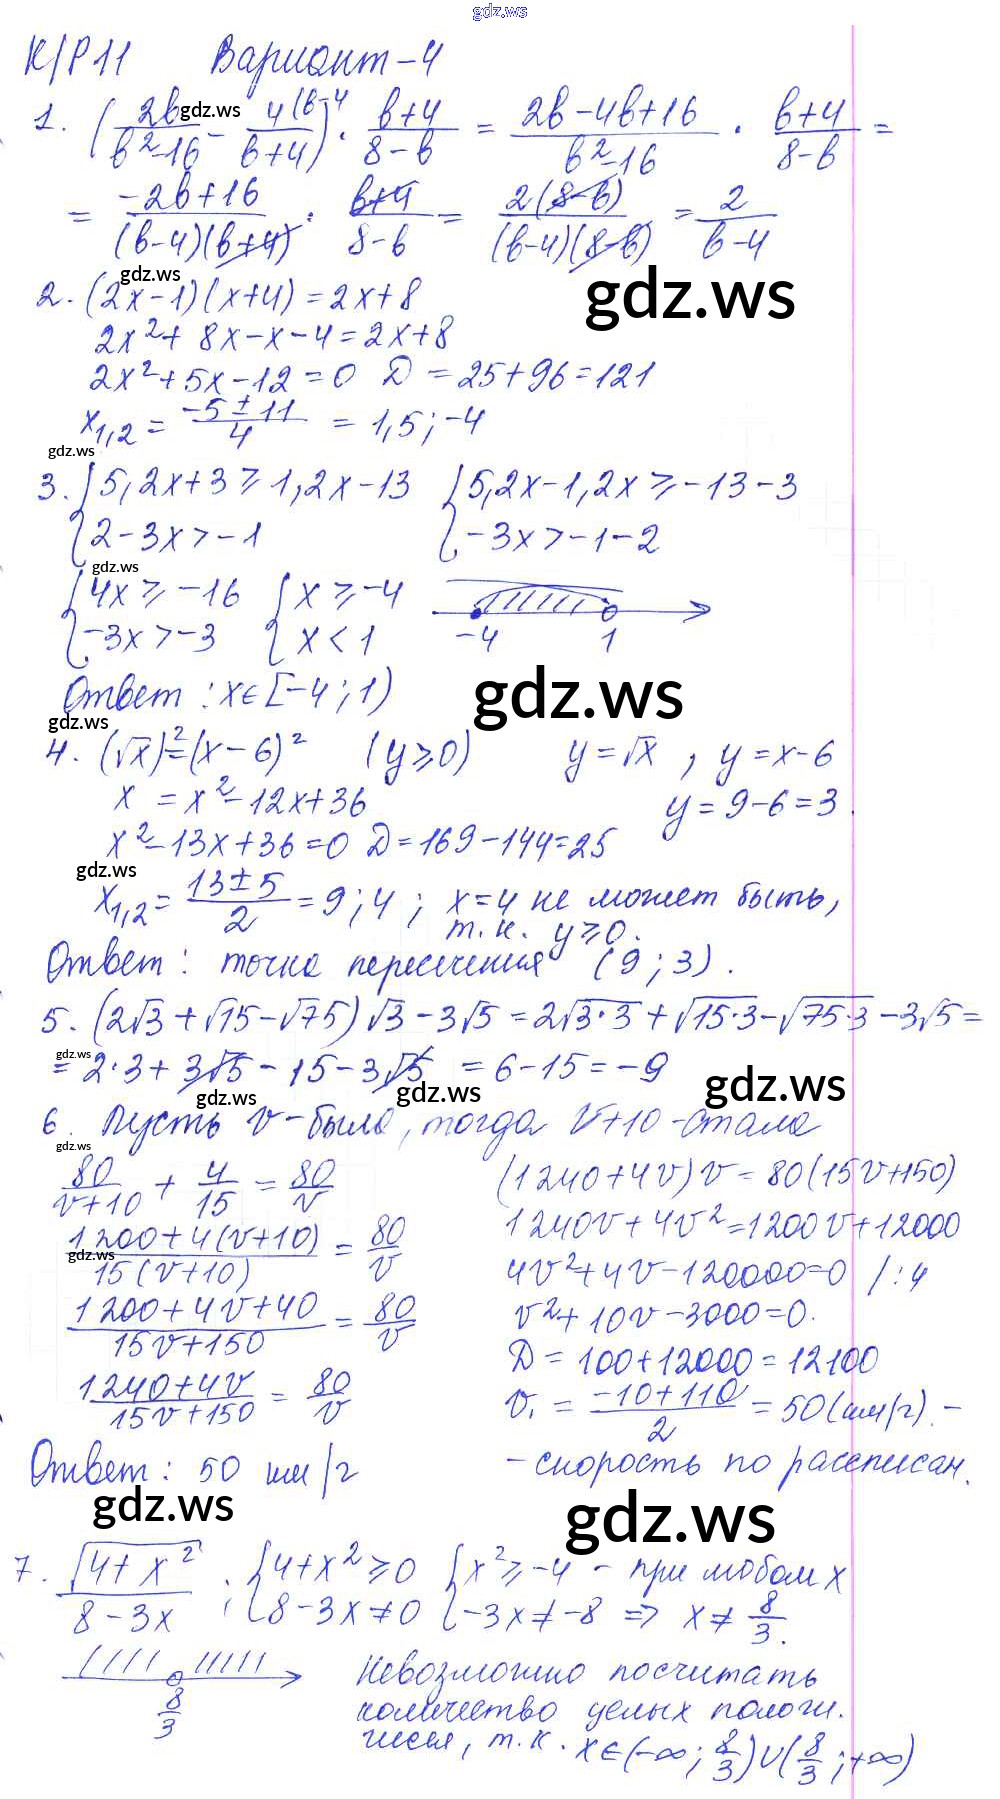 gdz.ws
К/Р 11 Вариант-4
gdz.ws
1. (2в/(в²-16) - 4^(в-4/(в+4)) · (в+4)/(8-в) = (2в-4в+16)/(в²-16) · (в+4)/(8-в) =
= (-2в+16)/((в-4)(в+4)) · (в+4)/(8-в) = 2(8-в)/((в-4)(8-в)) = 2/(в-4)
gdz.ws
gdz.ws
2. (2x-1)(x+4)=2x+8
2x²+8x-x-4=2x+8
2x²+5x-12=0 Д=25+96=121
x₁,₂ = (-5±11)/4 = 1,5; -4
gdz.ws
3. {5,2x+3⩾1,2x-13 {5,2x-1,2x⩾-13-3
{2-3x>-1 {-3x>-1-2
gdz.ws
{4x⩾-16 {x⩾-4
{-3x>-3 {x<1
-4 1
Ответ: x∈[-4;1)
gdz.ws
gdz.ws
4. (√x)²=(x-6)² (y⩾0) y=√x, y=x-6
x = x²-12x+36 y=9-6=3.
x²-13x+36=0 Д=169-144=25
gdz.ws
x₁,₂ = (13±5)/2 = 9; 4; x=4 не может быть,
т.к. y⩾0.
Ответ: точка пересечения (9;3).
5. (2√3+√15-√75)√3-3√5=2√3·3+√15·3-√75·3-3√5=
gdz.ws
= 2·3+3√5-15-3√5 = 6-15=-9
gdz.ws gdz.ws gdz.ws
6. Пусть v-была, тогда v+10-стала
gdz.ws
80/(v+10) + 4/15 = 80/v
(1200+4(v+10))/(15(v+10)) = 80/v
gdz.ws
(1200+4v+40)/(15v+150) = 80/v
(1240+4v)/(15v+150) = 80/v
(1240+4v)v=80(15v+150)
1240v+4v²=1200v+12000
4v²+4v-120000=0 /:4
v²+10v-3000=0.
Д=100+12000=12100
v₁ = (-10+110)/2 = 50(км/г). -
- скорость по расписан.
Ответ: 50 км/г
gdz.ws
gdz.ws
7. √(4+x²)/(8-3x); {4+x²⩾0 {x²⩾-4 - при любом x
{8-3x≠0 {-3x≠-8 ⇒ x≠8/3.
8/3
Невозможно посчитать
количество целых полож.
чисел, т.к. x∈(-∞;8/3)∪(8/3;+∞)